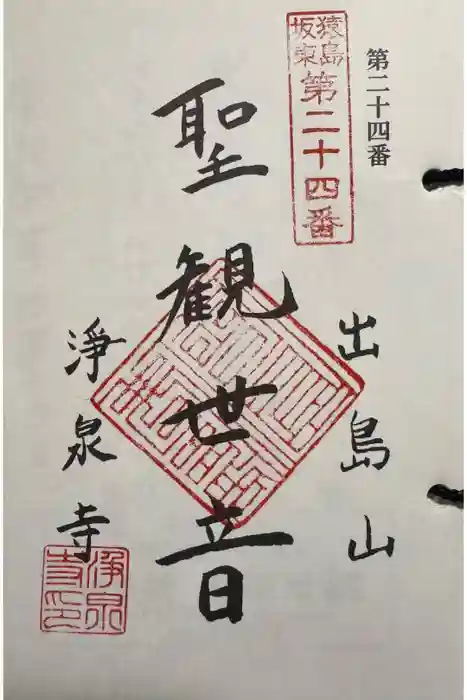 第二十四番
猿島
坂東
第二十四番
出島山
聖観世音
淨泉寺
淨泉
寺印